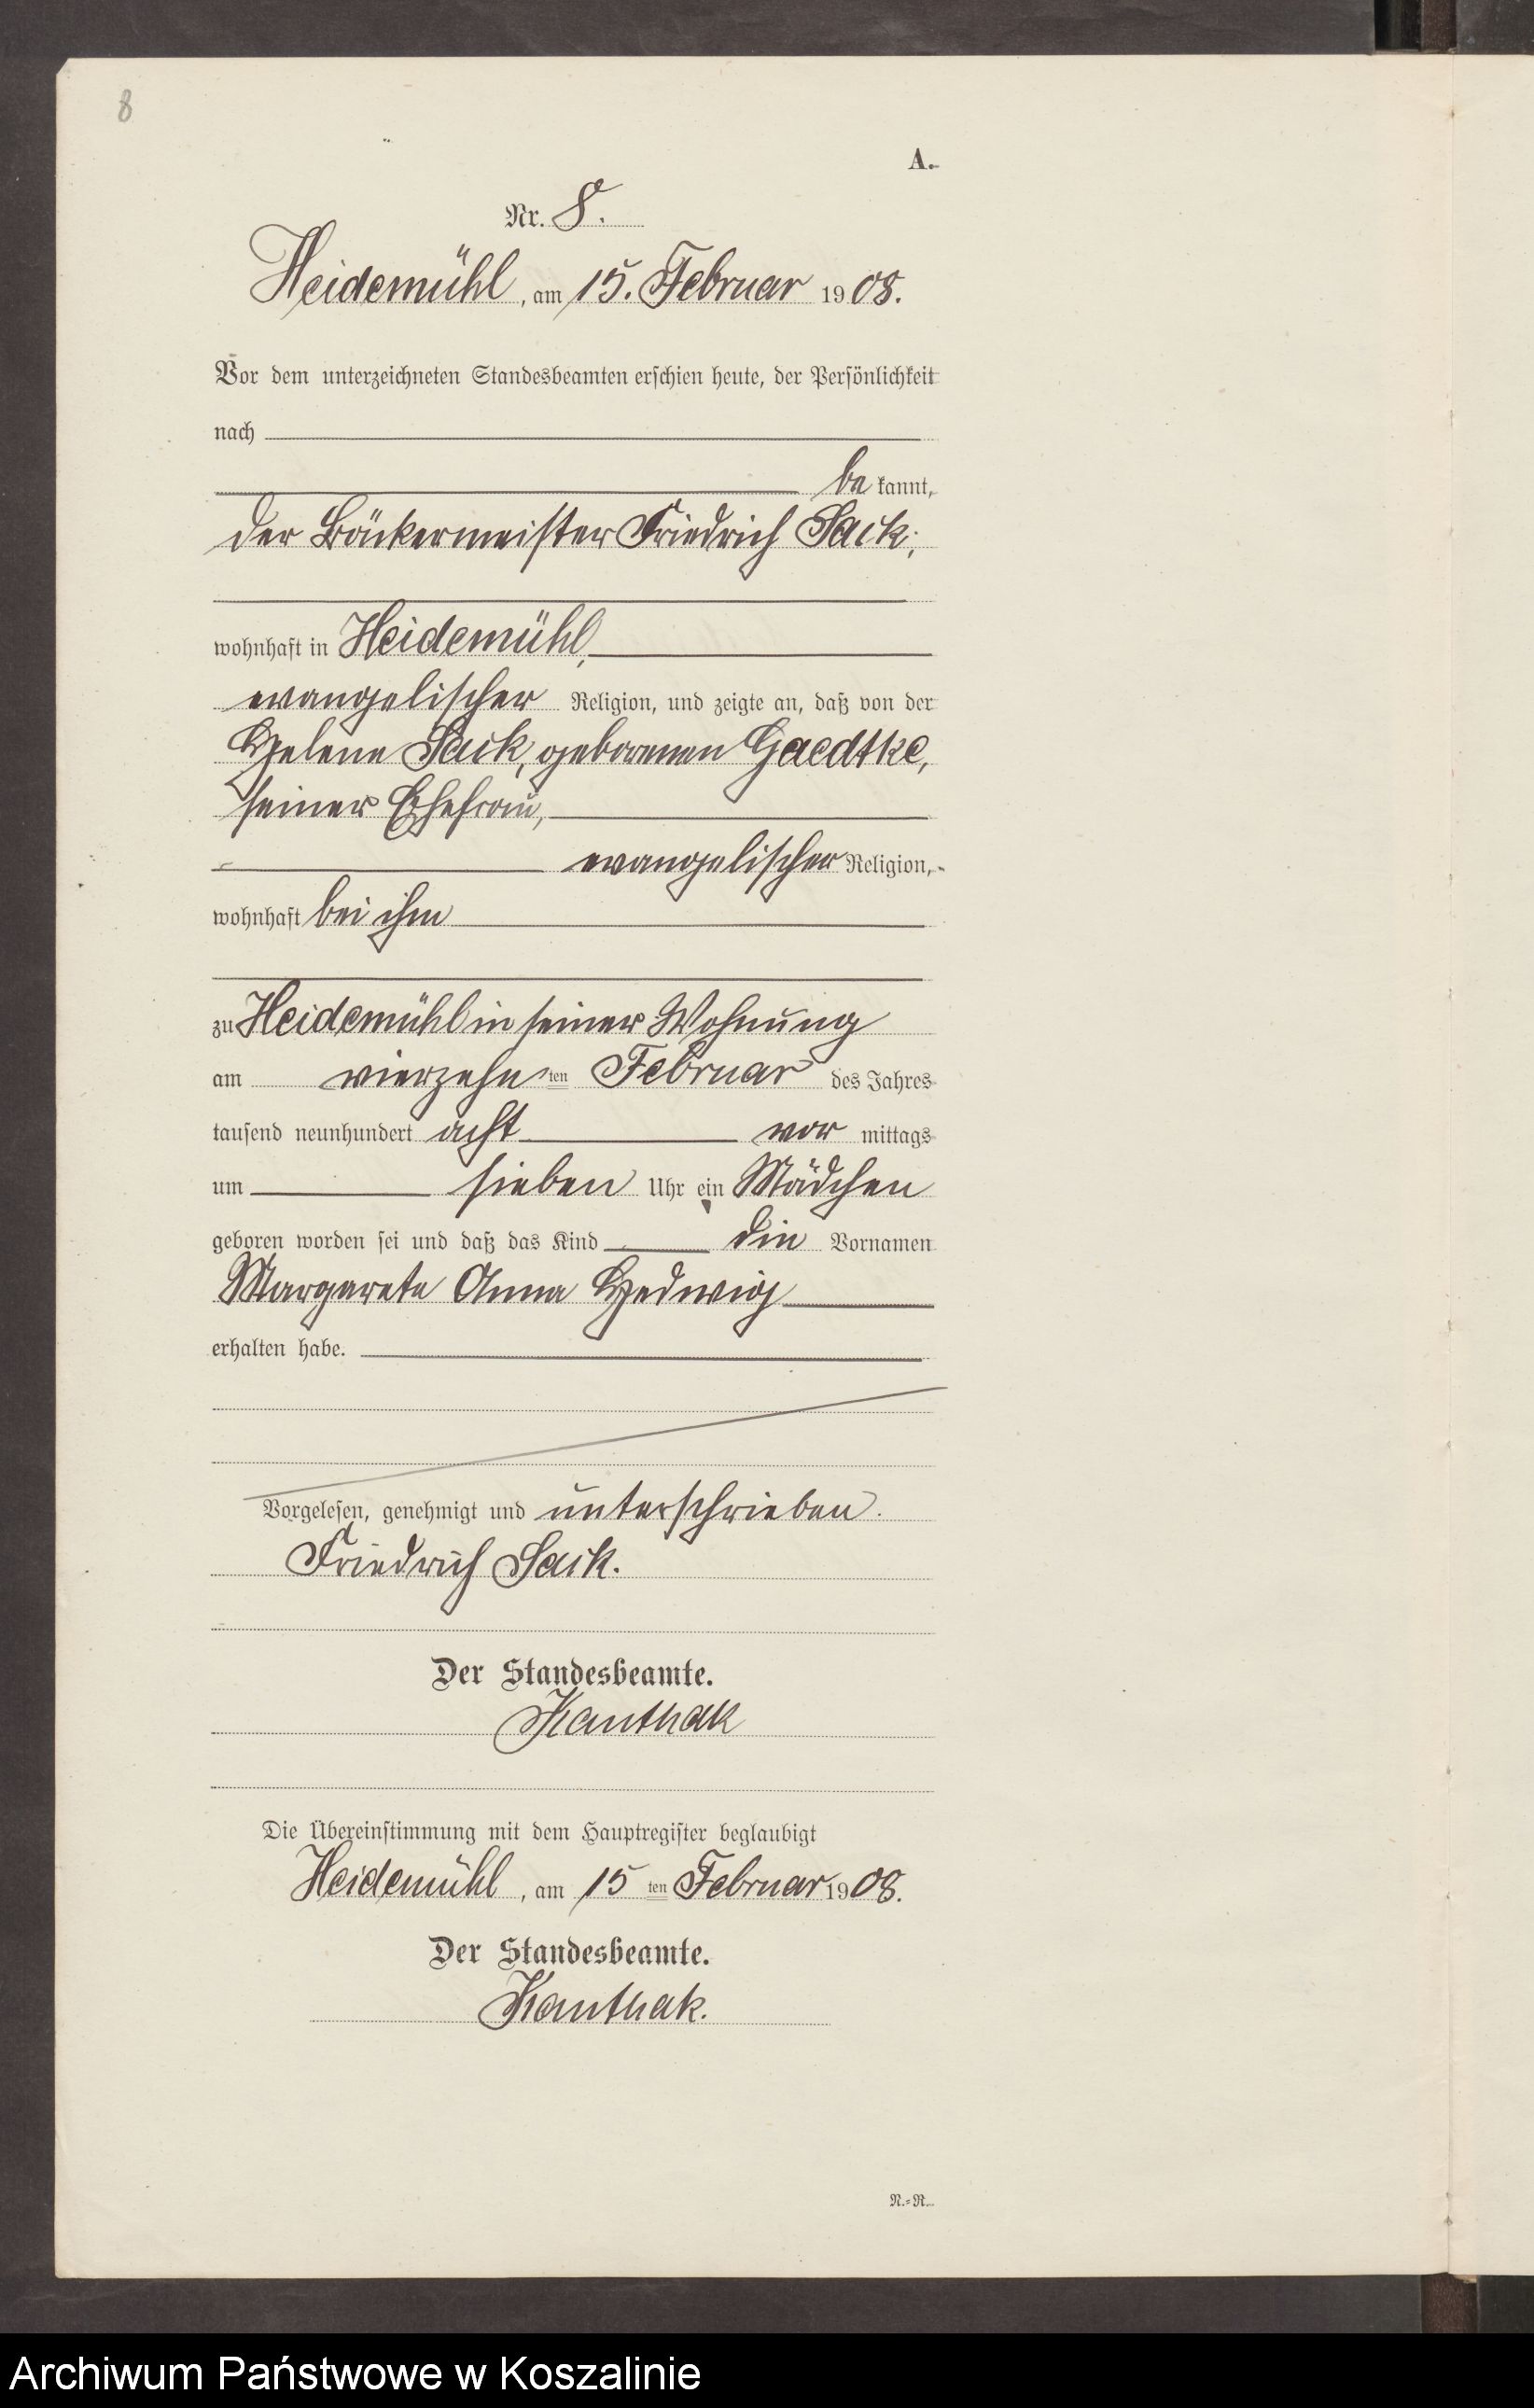 8
A.
Nr. 8.
Heidemühl, am 15. Februar 1908.
Vor dem unterzeichneten Standesbeamten erschien heute, der Persönlichkeit
nach
be kannt,
der Bäckermeister Friedrich Sack,
wohnhaft in Heidemühl,
evangelischer Religion, und zeigte an, daß von der
Helene Sack, geborenen Gaedtke,
seiner Ehefrau,
evangelischer Religion,
wohnhaft bei ihm
zu Heidemühl in seiner Wohnung
am vierzehnten Februar des Jahres
tausend neunhundert acht vor mittags
um sieben Uhr ein Mädchen
geboren worden sei und daß das Kind die Vornamen
Margarete Anna Hedwig
erhalten habe.
Vorgelesen, genehmigt und unterschrieben.
Friedrich Sack.
Der Standesbeamte.
Kanthak
Die Übereinstimmung mit dem Hauptregister beglaubigt
Heidemühl, am 15ten Februar 1908.
Der Standesbeamte.
Kanthak.
N.=R.
Archiwum Państwowe w Koszalinie